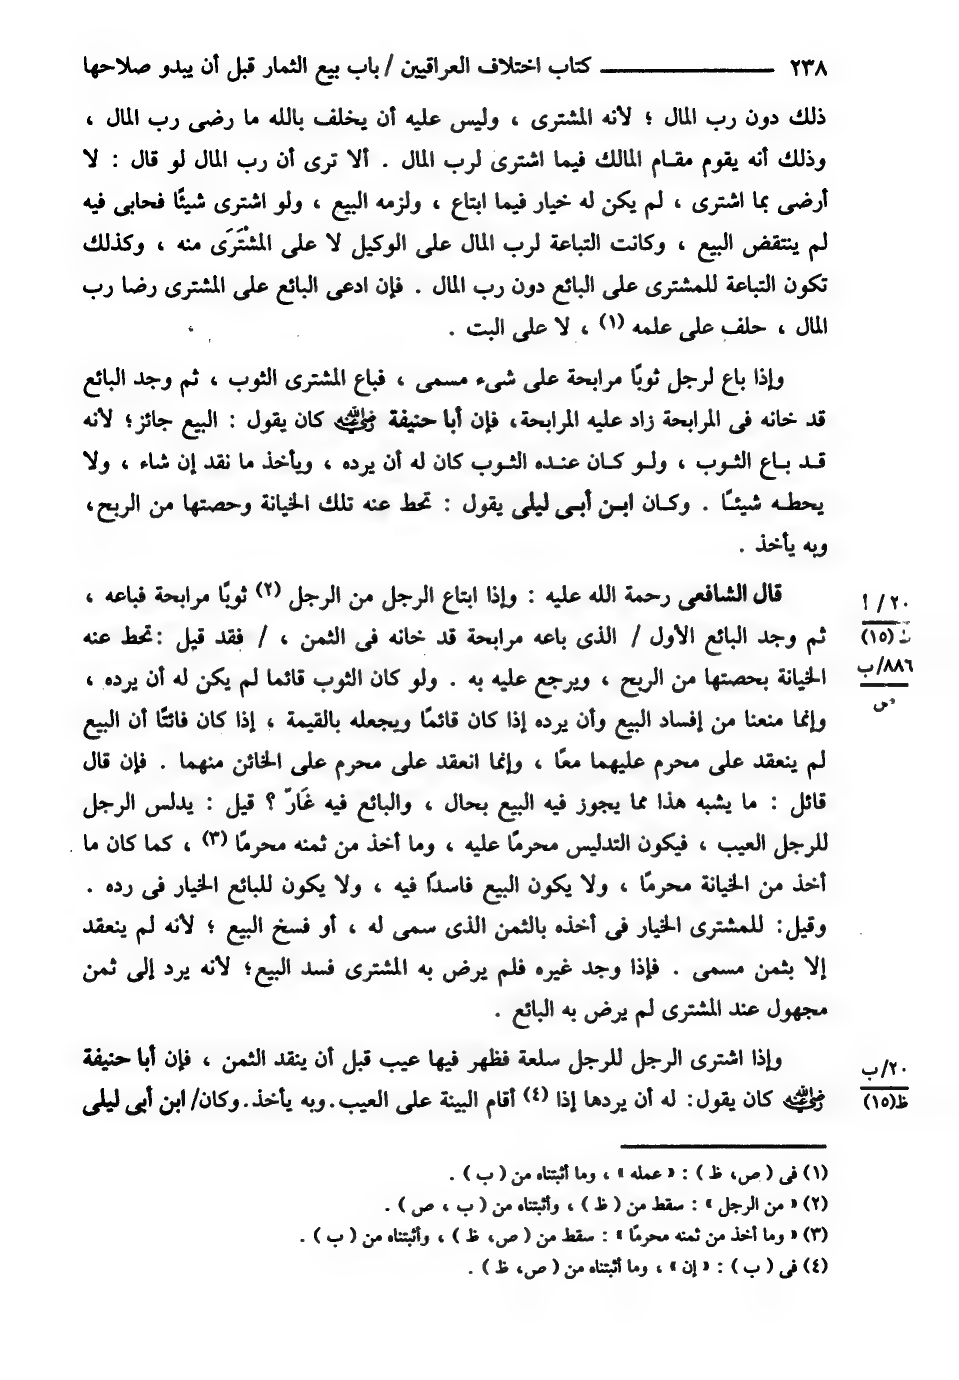 ٢٣٨ كتاب اختلاف العراقيين / باب بيع الثمار قبل أن يبدو صلاحها
ذلك دون رب المال ؛ لأنه المشترى ، وليس عليه أن يخلف بالله ما رضى رب المال ،
وذلك أنه يقوم مقام المالك فيما اشترى لرب المال . ألا ترى أن رب المال لو قال : لا
أرضى بما اشترى ، لم يكن له خيار فيما ابتاع ، ولزمه البيع ، ولو اشترى شيئًا فحابى فيه
لم ينتقض البيع ، وكانت التباعة لرب المال على الوكيل لا على المشْتَرَى منه ، وكذلك
تكون التباعة للمشترى على البائع دون رب المال . فإن ادعى البائع على المشترى رضا رب
المال ، حلف على علمه (١) ، لا على البت .
وإذا باع لرجل ثوبًا مرابحة على شىء مسمى ، فباع المشترى الثوب ، ثم وجد البائع
قد خانه فى المرابحة زاد عليه المرابحة، فإن أبا حنيفة رضي الله عنه كان يقول : البيع جائز؛ لأنه
قد باع الثوب ، ولو كان عنده الثوب كان له أن يرده ، ويأخذ ما نقد إن شاء ، ولا
يحطه شيئًا . وكان ابن أبى ليلى يقول : تحط عنه تلك الخيانة وحصتها من الربح،
وبه يأخذ .
قال الشافعى رحمة الله عليه : وإذا ابتاع الرجل من الرجل (٢) ثوبًا مرابحة فباعه ،
٢٠ / أ
ثم وجد البائع الأول / الذى باعه مرابحة قد خانه فى الثمن ، / فقد قيل :تحط عنه
(١٥)
الخيانة بحصتها من الربح ، ويرجع عليه به . ولو كان الثوب قائما لم يكن له أن يرده ،
٨٨٦/ب
وإنما منعنا من إفساد البيع وأن يرده إذا كان قائمًا ويجعله بالقيمة ، إذا كان فائتًا أن البيع
ص
لم ينعقد على محرم عليهما معًا ، وإنما انعقد على محرم على الخائن منهما . فإن قال
قائل : ما يشبه هذا مما يجوز فيه البيع بحال ، والبائع فيه غَارّ ؟ قيل : يدلس الرجل
للرجل العيب ، فيكون التدليس محرمًا عليه ، وما أخذ من ثمنه محرمًا (٣) ، كما كان ما
أخذ من الخيانة محرمًا ، ولا يكون البيع فاسدًا فيه ، ولا يكون للبائع الخيار فى رده .
وقيل: للمشترى الخيار فى أخذه بالثمن الذى سمى له ، أو فسخ البيع ؛ لأنه لم ينعقد
إلا بثمن مسمى . فإذا وجد غيره فلم يرض به المشترى فسد البيع؛ لأنه يرد إلى ثمن
مجهول عند المشترى لم يرض به البائع .
وإذا اشترى الرجل للرجل سلعة فظهر فيها عيب قبل أن ينقد الثمن ، فإن أبا حنيفة
٢٠/ب
رضي الله عنه كان يقول: له أن يردها إذا (٤) أقام البينة على العيب.وبه يأخذ.وكان/ ابن أبى ليلى
ظ(١٥)
(١) فى ( ص، ظ ) : « عمله » ، وما أثبتناه من ( ب ) .
(٢) « من الرجل » : سقط من ( ظ ) ، وأثبتناه من ( ب ، ص ) .
(٣) « وما أخذ من ثمنه محرمًا » : سقط من ( ص، ظ ) ، وأثبتناه من ( ب ) .
(٤) فى ( ب ) : « إن » ، وما أثبتناه من ( ص، ظ ) .